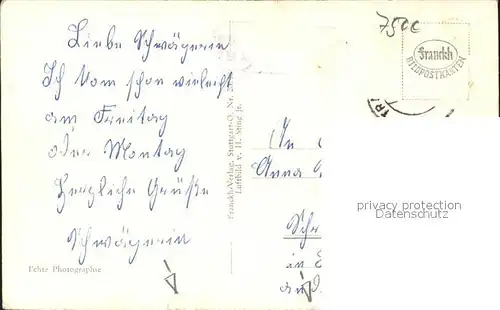 Liebe Schwägerin
Ich kom schon vieleicht
am Freitag
oder Montag
Herzliche Grüße
Schwägerin
Echte Photographie
Franckh-Verlag, Stuttgart-O, Nr.
Luftbild v. H. Sting jr.
7500
Franckh
BILDPOSTKARTEN
An
Anna
in
privacy protection
Datenschutz